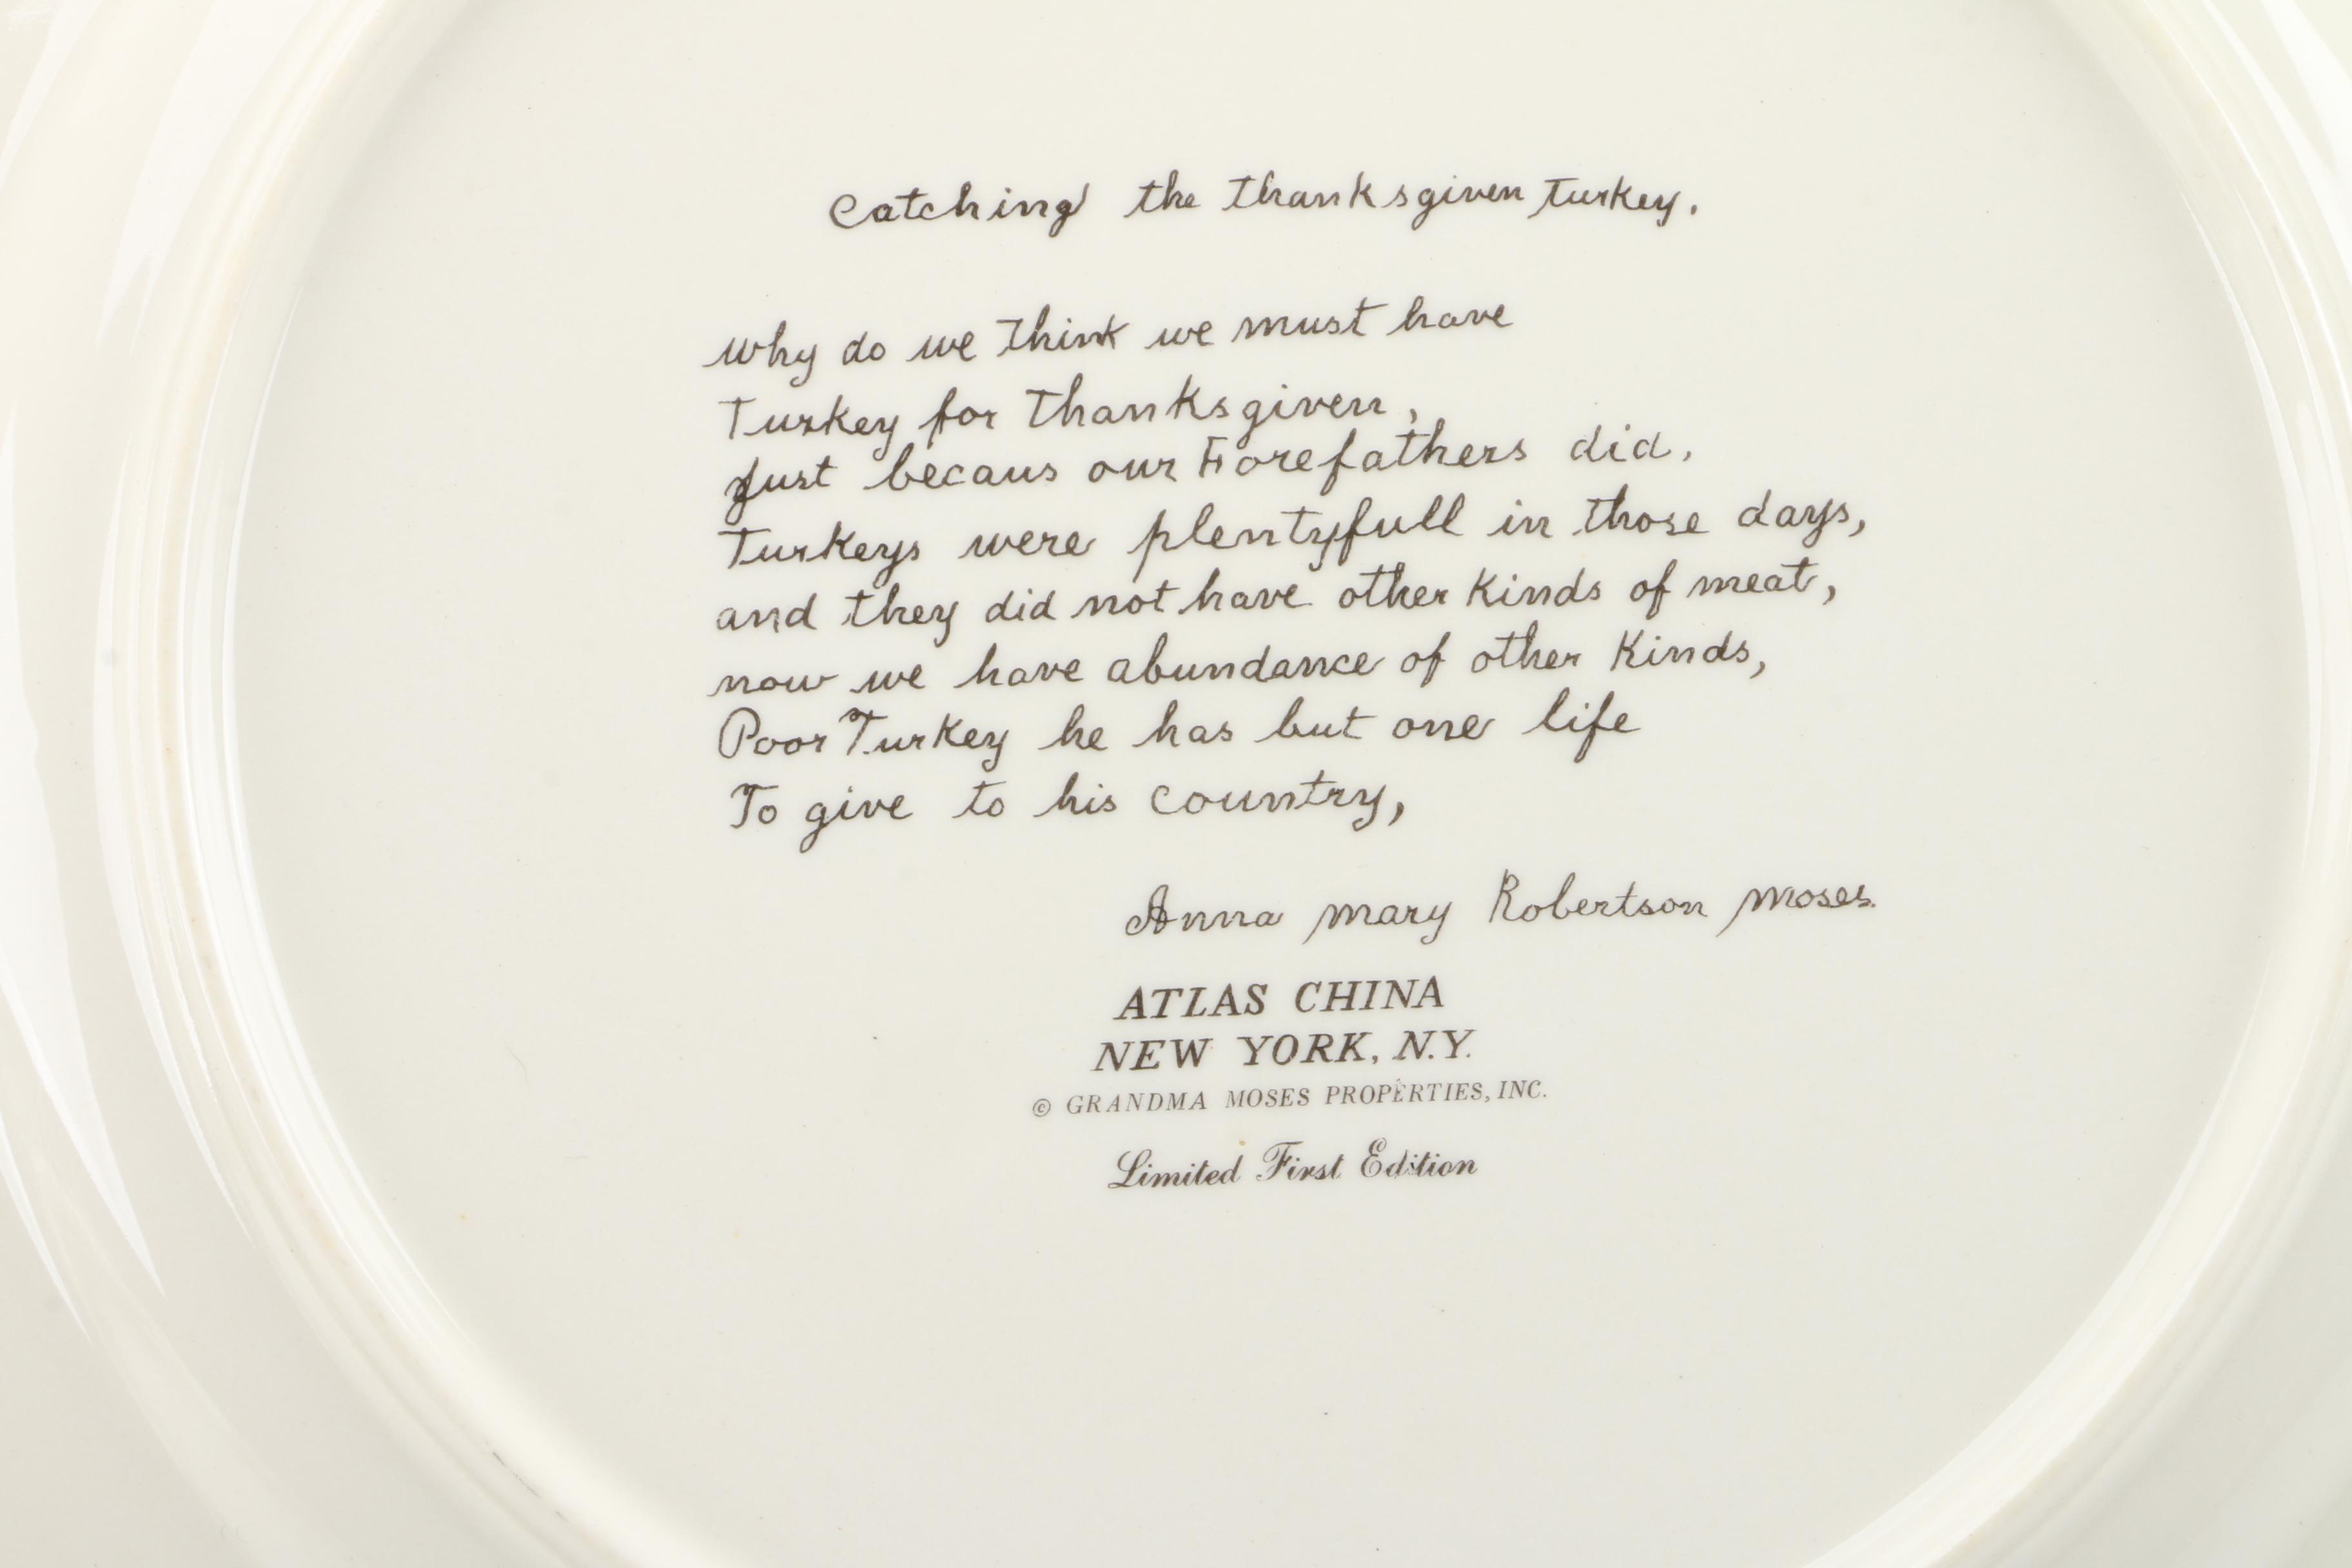 Catching the thanksgiven Turkey.
why do we think we must have
Turkey for Thanksgiven,
Just becaus our Forefathers did.
Turkeys were plentyfull in those days,
and they did not have other kinds of meat,
now we have abundance of other kinds,
Poor Turkey he has but one life
To give to his country,
Anna mary Robertson moses.
ATLAS CHINA
NEW YORK, N.Y.
© GRANDMA MOSES PROPERTIES, INC.
Limited First Edition